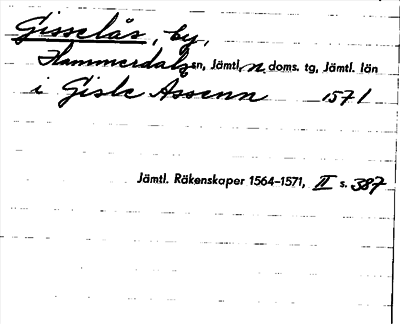 Gisselås, by,
Hammerdals sn, Jämtl. n. doms. tg, Jämtl. län
i Gisle Assenn 1571
Jämtl. Räkenskaper 1564-1571, II s. 387